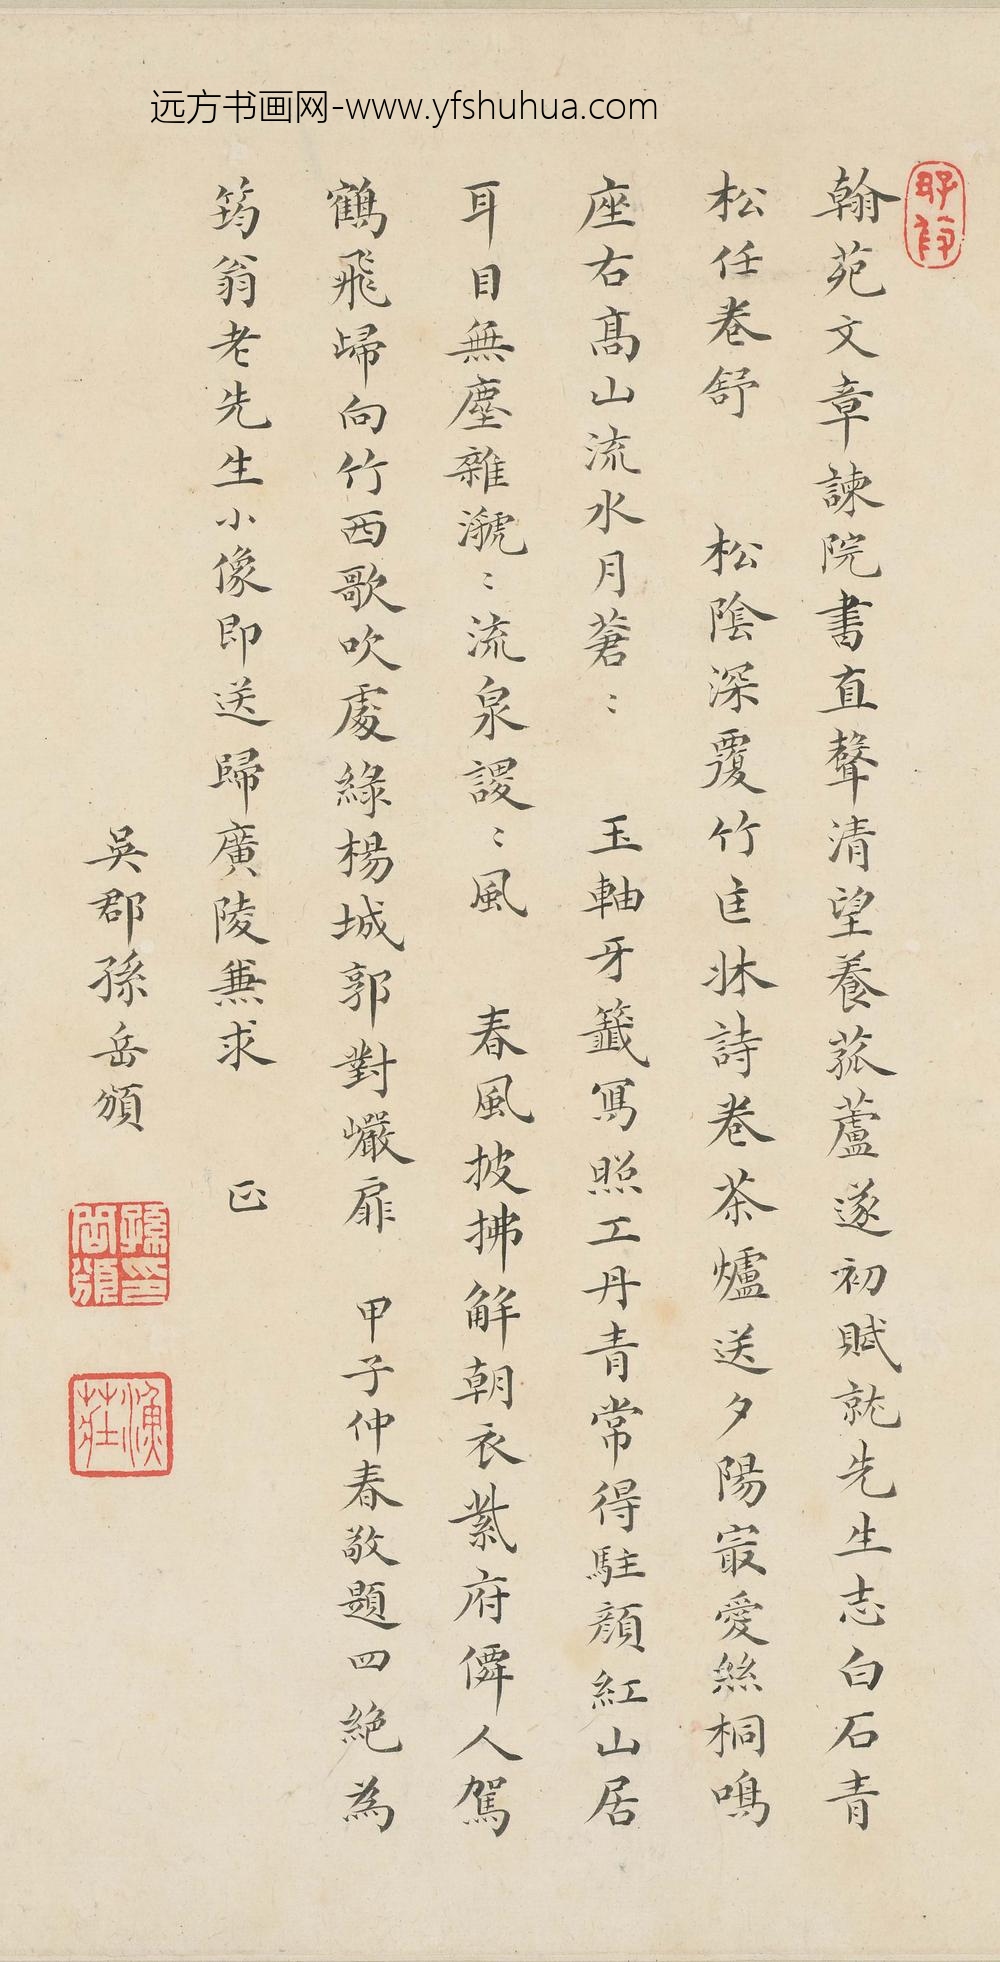 远方书画网-www.yfshuhua.com
翰苑文章諫院書直聲清望養菰蘆遂初賦就先生志白石青
松任卷舒 松陰深覆竹匡牀詩卷茶爐送夕陽冣愛絲桐鳴
座右高山流水月蒼〻 玉軸牙籤寫照工丹青常得駐顏紅山居
耳目無塵雜㶁〻流泉謖〻風 春風披拂解朝衣紫府僊人駕
鶴飛歸向竹西歌吹處綠楊城郭對巖扉 甲子仲春敬題四絕為
筠翁老先生小像即送歸廣陵兼求
正
吳郡孫岳頒
孫岳頒印
漁莊